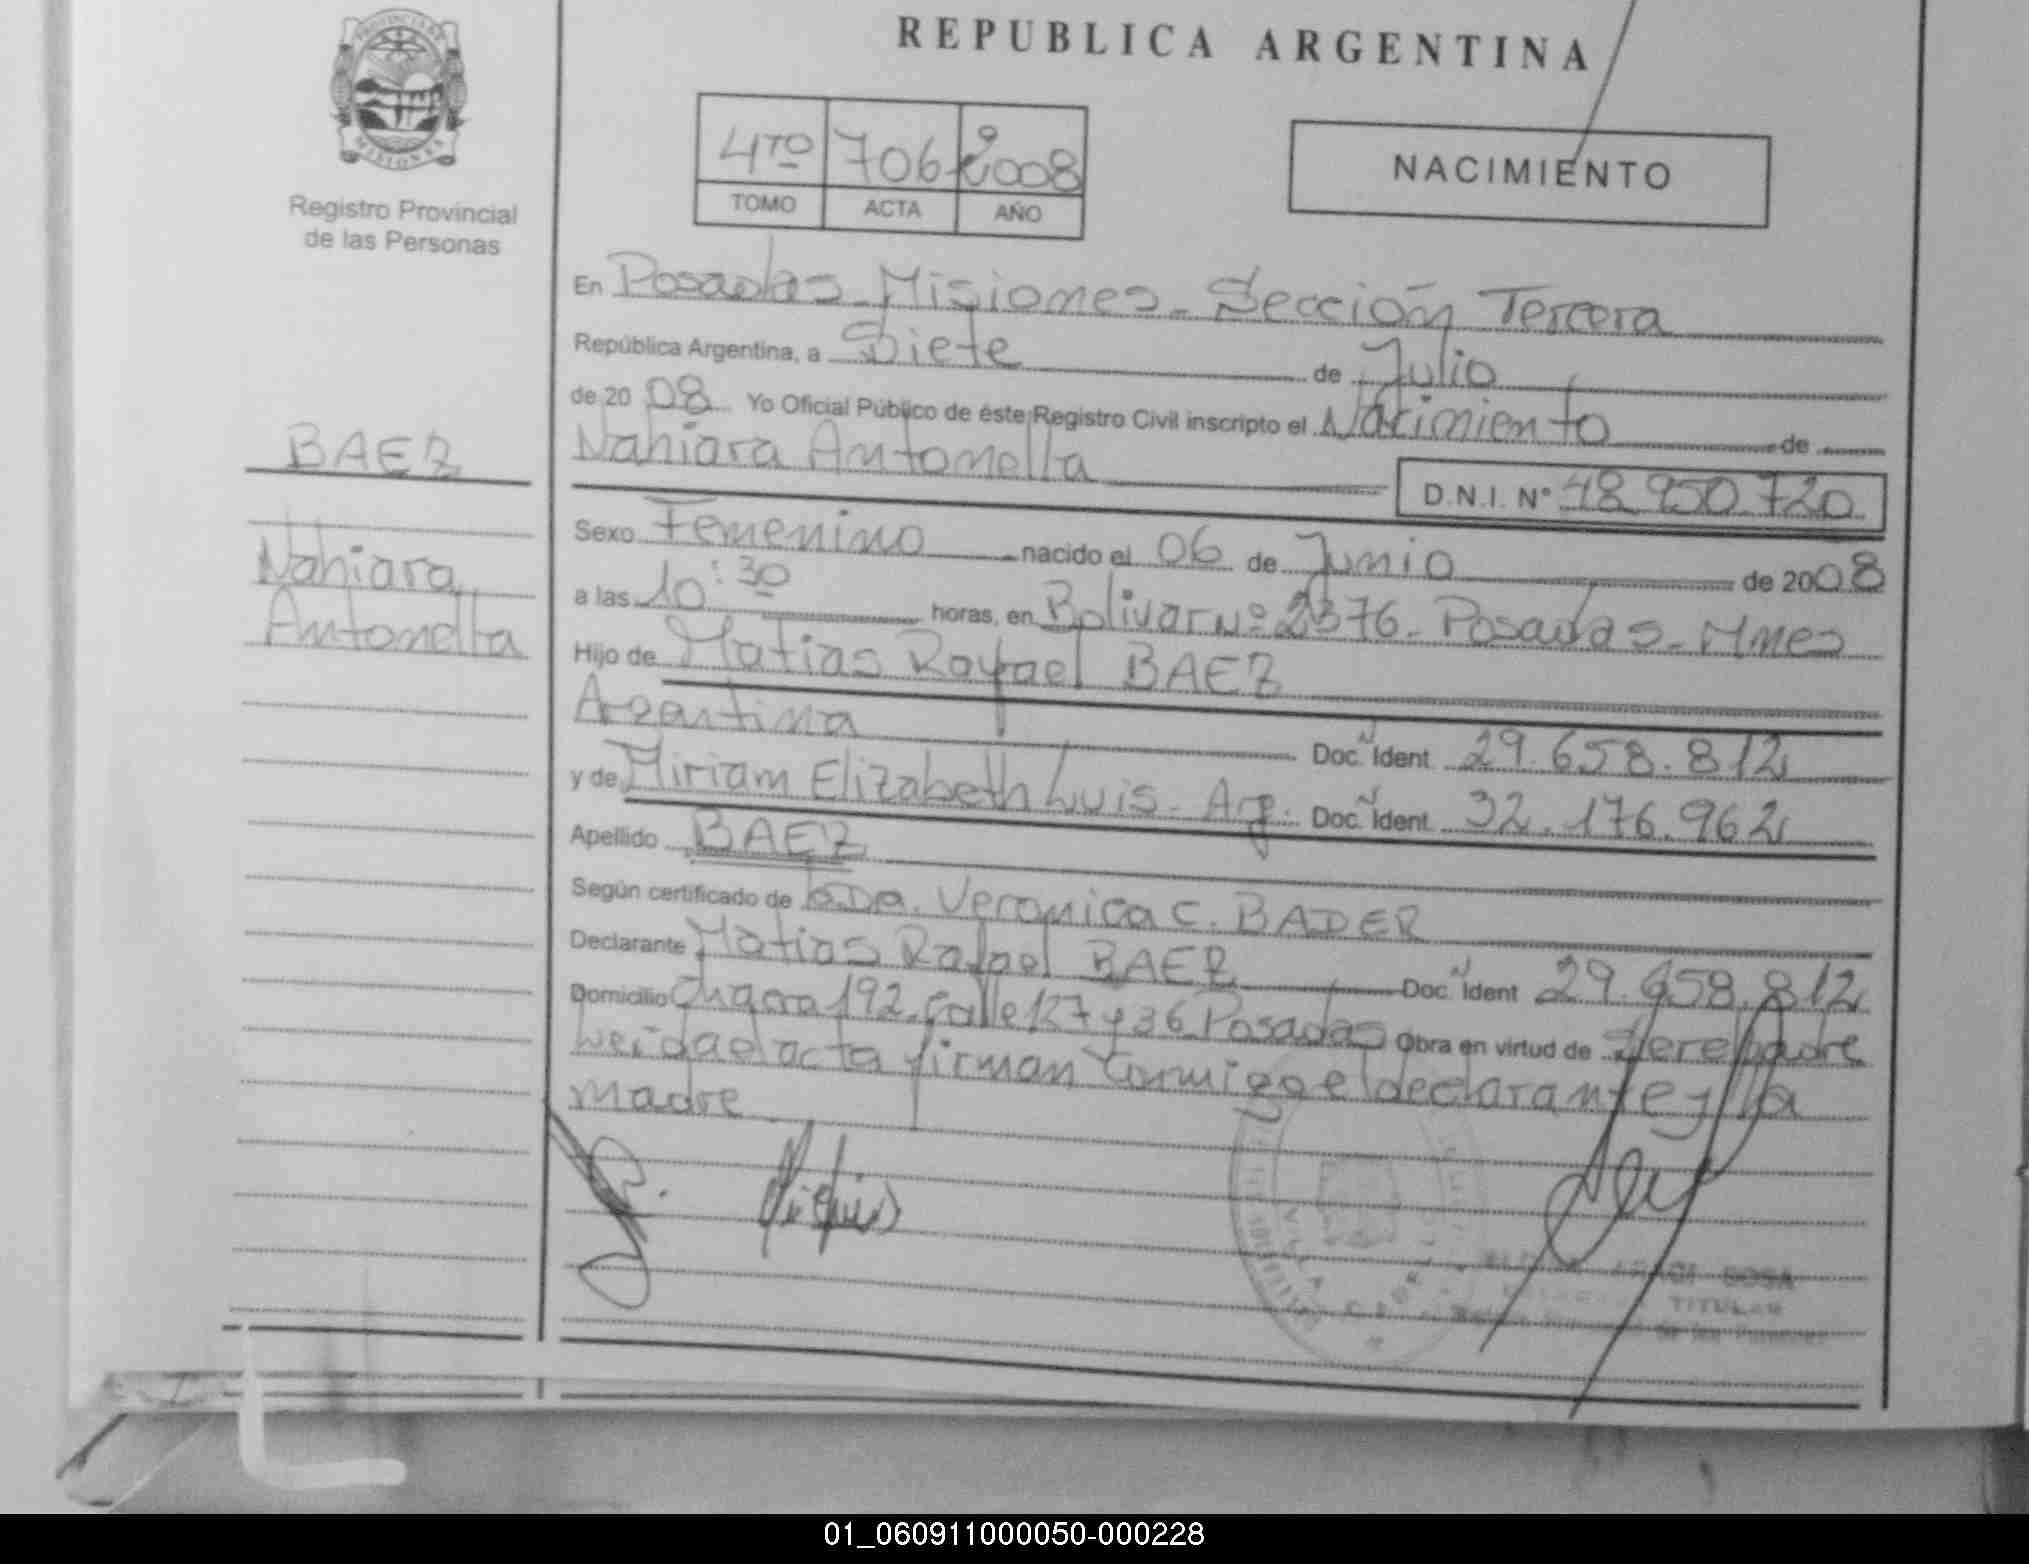 PROVINCIA DE
MISIONES
Registro Provincial
de las Personas
REPUBLICA ARGENTINA
4TO 706 2008
TOMO ACTA AÑO
NACIMIENTO
En Posadas - Misiones - Sección Tercera
República Argentina, a Siete de Julio
de 2008 Yo Oficial Público de éste Registro Civil inscripto el Nacimiento de
Nahiara Antonella
D.N.I. Nº 48.950.720
BAEZ
Nahiara
Antonella
Sexo Femenino nacido el 06 de Junio de 2008
a las 10:30 horas, en Bolivar Nº 2376 - Posadas - Mnes
Hijo de Matias Rafael BAEZ
Argentina Doc. Ident 29.658.812
y de Miriam Elizabeth Luis - Arg. Doc. Ident 32.176.962
Apellido BAEZ
Según certificado de Veronica C. BADER
Declarante Matias Rafael BAEZ Doc. Ident 29.658.812
Domicilio Chacra 192 - Calle 127 y 36 Posadas Obra en virtud de padre
Leida el acta firman conmigo el declarante y la
madre
SOSA
TITULAR
de las Personas
01_060911000050-000228